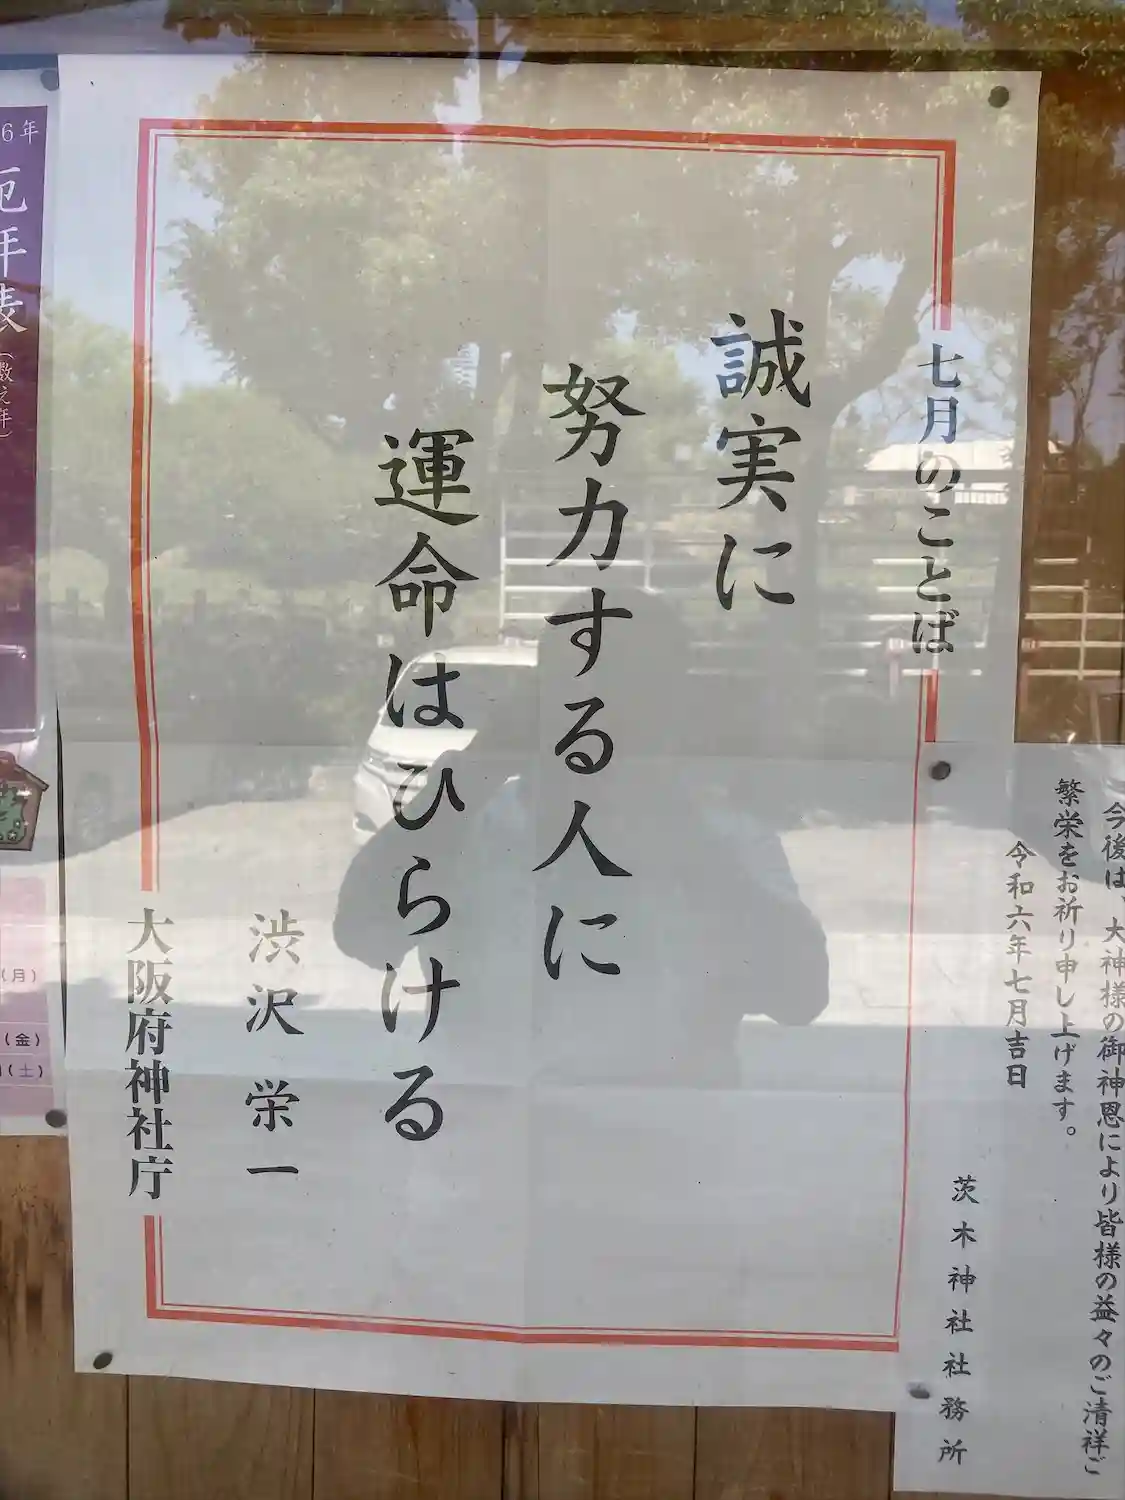 七月のことば
誠実に
努力する人に
運命はひらける
渋沢栄一
大阪府神社庁
今後は、大神様の御神恩により皆様の益々のご清祥ご
繁栄をお祈り申し上げます。
令和六年七月吉日
茨木神社社務所
6年
厄年表
(数え年)
(月)
(金)
(土)